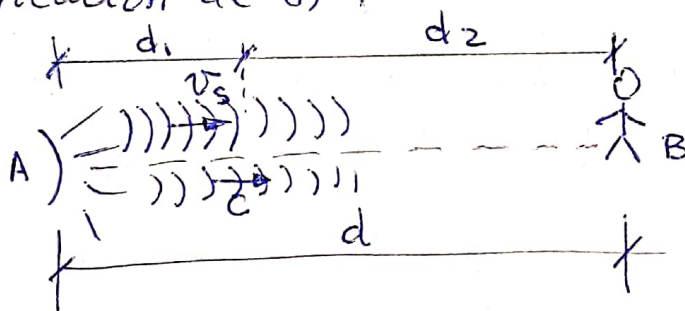 d1 d2
vs
A B
c
d